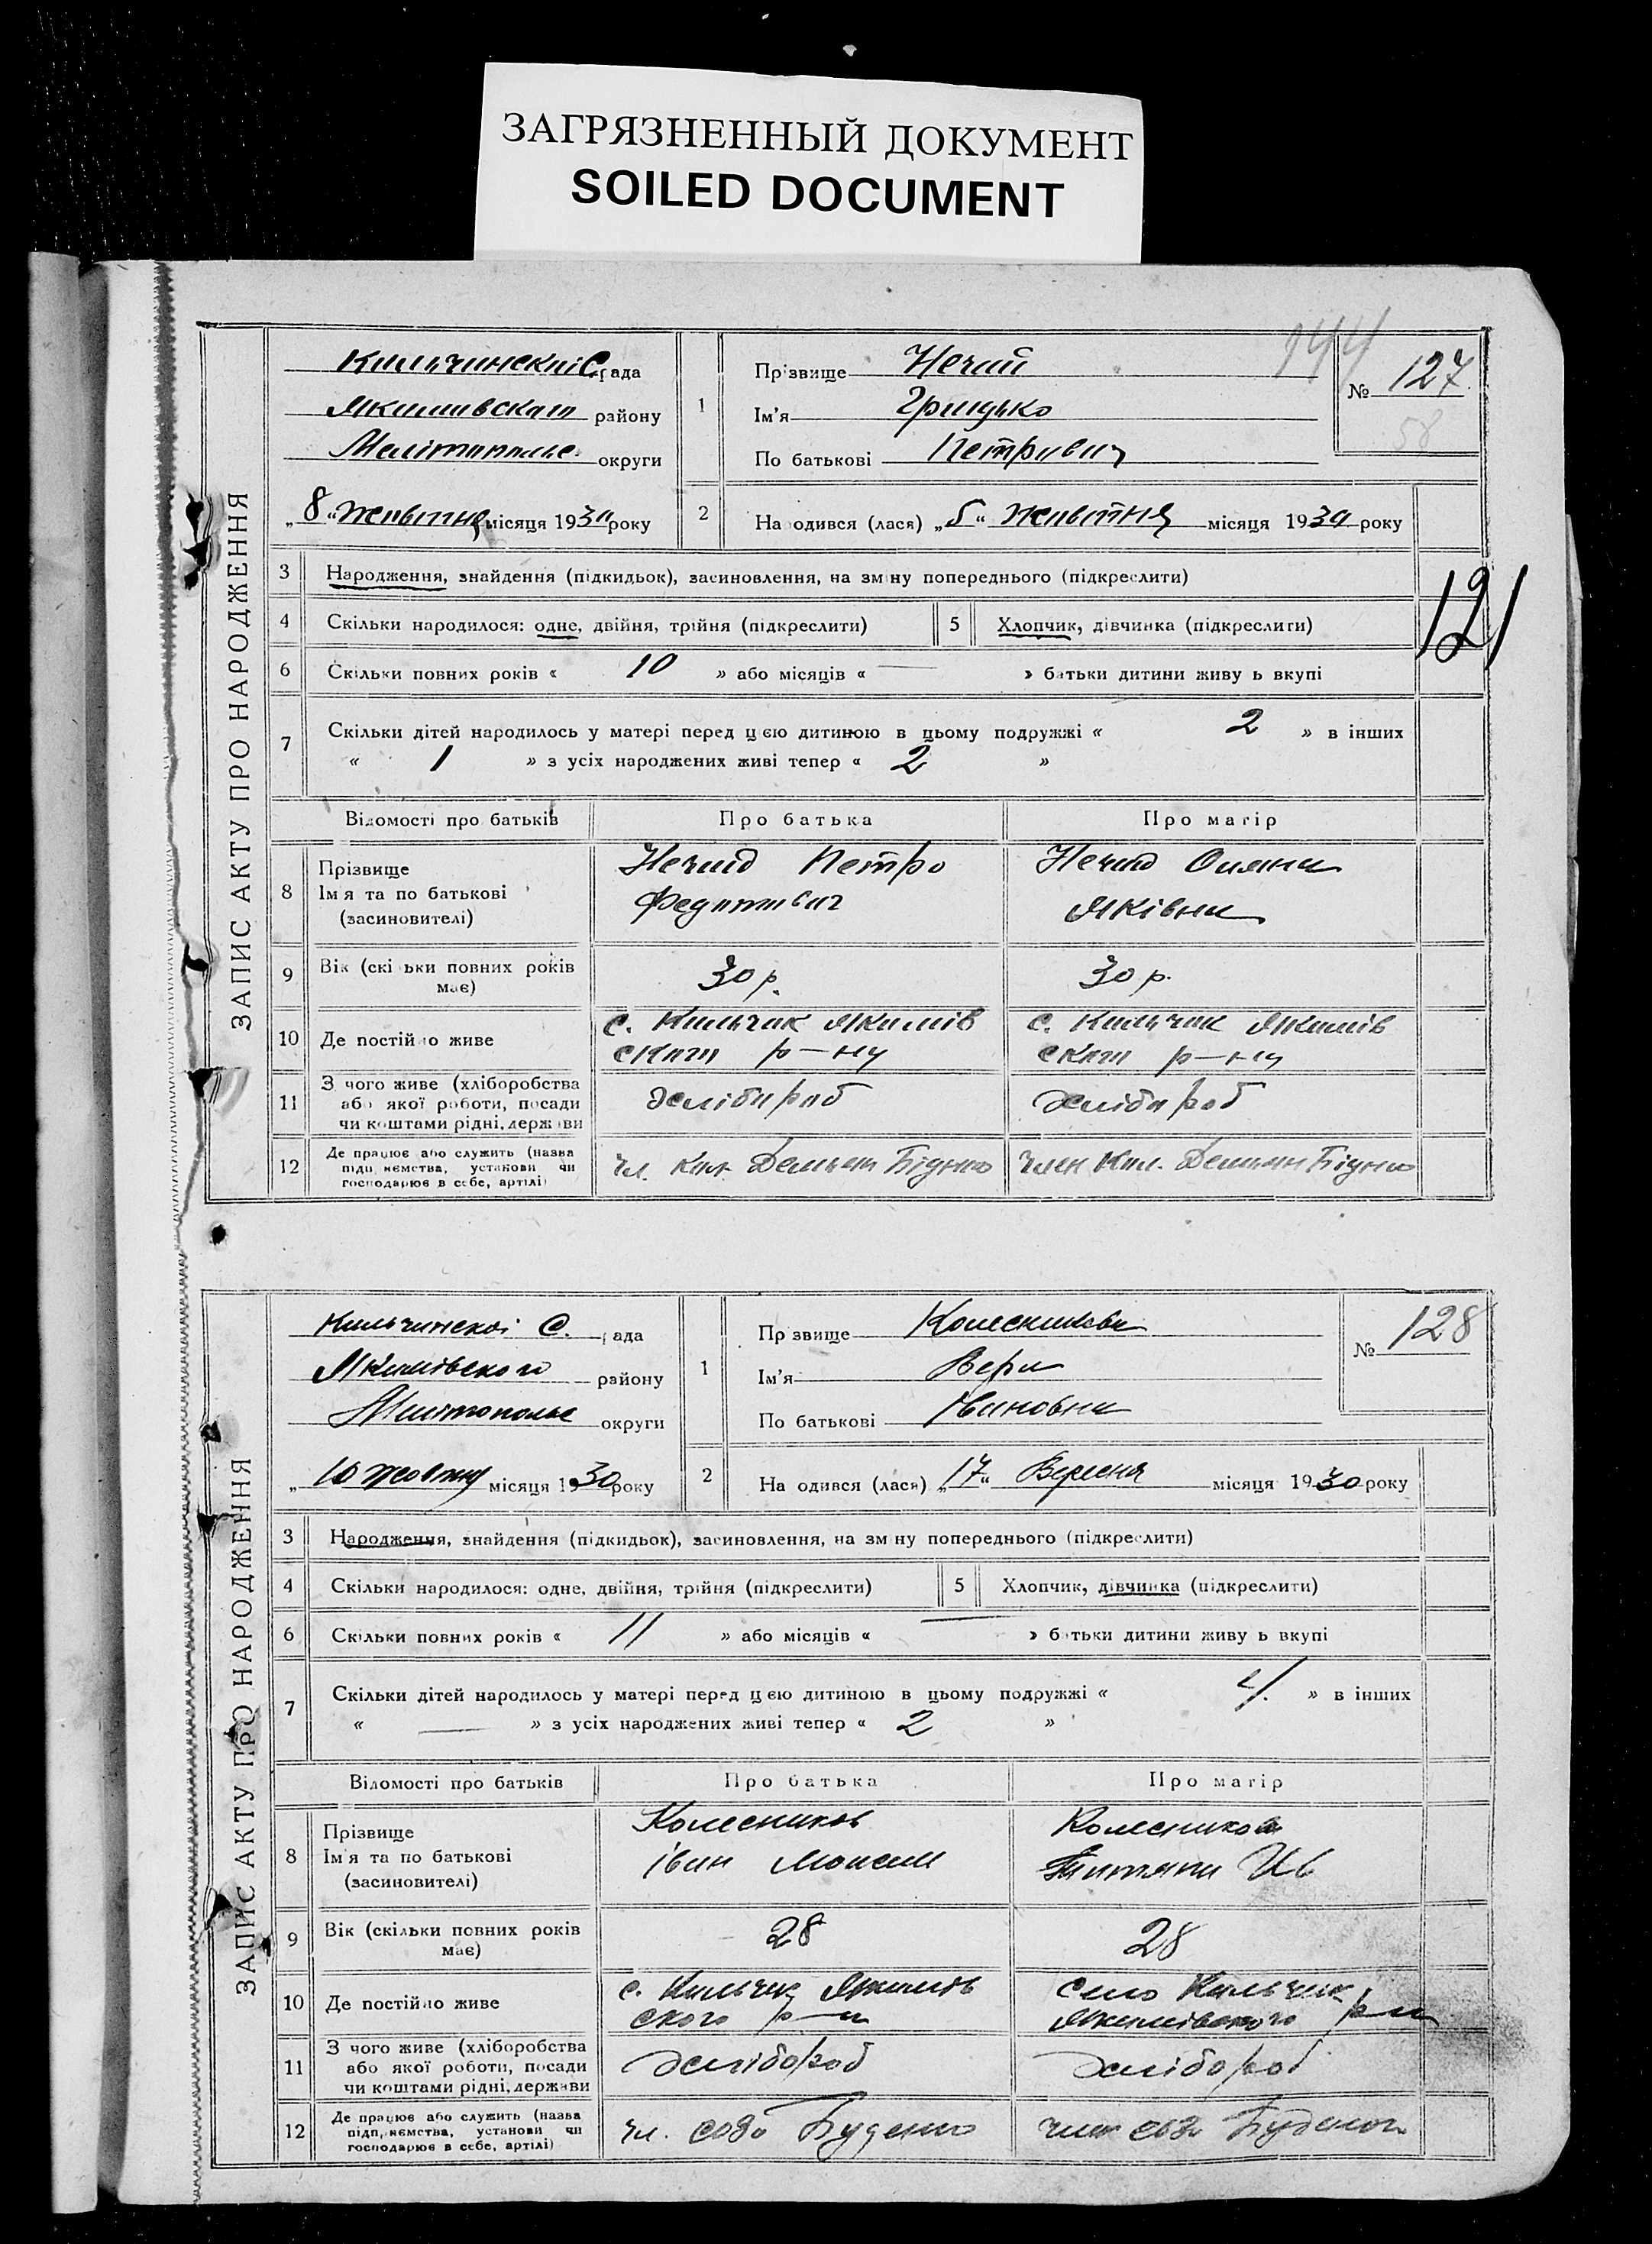 ЗАГРЯЗНЕННЫЙ ДОКУМЕНТ
SOILED DOCUMENT
144
ЗАПИС АКТУ ПРО НАРОДЖЕННЯ
рада
району
округи
„8“ Жовтня місяця 1930 року
1
Прізвище Нечай
Ім'я Грицько
По батькові Петрович
№ 127
58
2
Народився (лася) „5“ Жовтня місяця 1930 року
3 Народження, знайдення (підкидьок), засиновлення, на зміну попереднього (підкреслити)
4 Скільки народилося: одне, двійня, трійня (підкреслити)
5 Хлопчик, дівчинка (підкреслити)
121
6 Скільки повних років « 10 » або місяців « — » батьки дитини живуть вкупі
7 Скільки дітей народилось у матері перед цією дитиною в цьому подружжі « 2 » в інших
« 1 » з усіх народжених живі тепер « 2 »
Відомості про батьків Про батька Про матір
8 Прізвище
Ім'я та по батькові
(засиновителі)
Нечай Петро
Федотович
Нечай
Яківна
9 Вік (скільки повних років
має)
30 р.
30 р.
10 Де постійно живе
с. Якимів
ского р-ну
с. Якимів
ского р-ну
11 З чого живе (хліборобства
або якої роботи, посади
чи коштами рідні, держави
хлібороб
хлібороб
12 Де працює або служить (назва
підприємства, установи чи
господарює в себе, артілі)
чл. Кол. Демьян Бідного
член Кол. Демьян Бідного
ЗАПИС АКТУ ПРО НАРОДЖЕННЯ
С. рада
Якимівського району
округи
„10 жовтня місяця 1930 року
1
Прізвище Колесникова
Ім'я Вера
По батькові Івановна
№ 128
2
Народився (лася) „17“ Вересня місяця 1930 року
3 Народження, знайдення (підкидьок), засиновлення, на зміну попереднього (підкреслити)
4 Скільки народилося: одне, двійня, трійня (підкреслити)
5 Хлопчик, дівчинка (підкреслити)
6 Скільки повних років « 11 » або місяців « — » батьки дитини живуть вкупі
7 Скільки дітей народилось у матері перед цією дитиною в цьому подружжі « 4. » в інших
« — » з усіх народжених живі тепер « 2 »
Відомості про батьків Про батька Про матір
8 Прізвище
Ім'я та по батькові
(засиновителі)
Колесников
Іван
Колесникова
Татяна Ив
9 Вік (скільки повних років
має)
28
28
10 Де постійно живе
с. Якимів
ского р-н
село
Якимівского р-н
11 З чого живе (хліборобства
або якої роботи, посади
чи коштами рідні, держави
хлібороб
хлібороб
12 Де працює або служить (назва
підприємства, установи чи
господарює в себе, артілі)
чл. созо Буденого
член созо Буденого